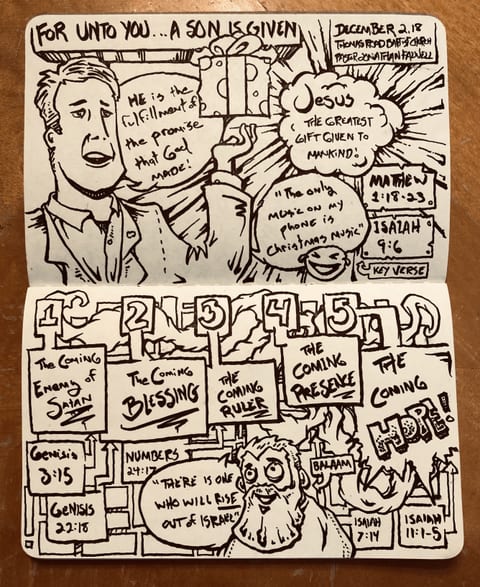 FOR UNTO YOU...A SON IS GIVEN
DECEMBER 2.18
THOMAS ROAD BAPTIST CHURCH
PASTER JONATHAN FALWELL
HE is the
fulfillment of
the promise
that God
MADE!
Jesus
THE GREATEST
GIFT GIVEN TO
MANKIND!
"The only
Music on my
phone is
Christmas Music"
MATHEW
1:18-23
ISAIAH
9:6
KEY VERSE
1
2
3
4
5
The Coming
Enemy of
SATAN
The Coming
BLESSING
THE
COMING
RULER
THE
COMING
PRESENCE
THE
COMING
HOPE!
Genisis
3:15
GENISIS
22:18
NUMBERS
24:17
"THERE IS ONE
WHO WILL RISE
OUT of ISRAEL"
BALAAM
ISAIAH
7:14
ISAIAH
11:1-5